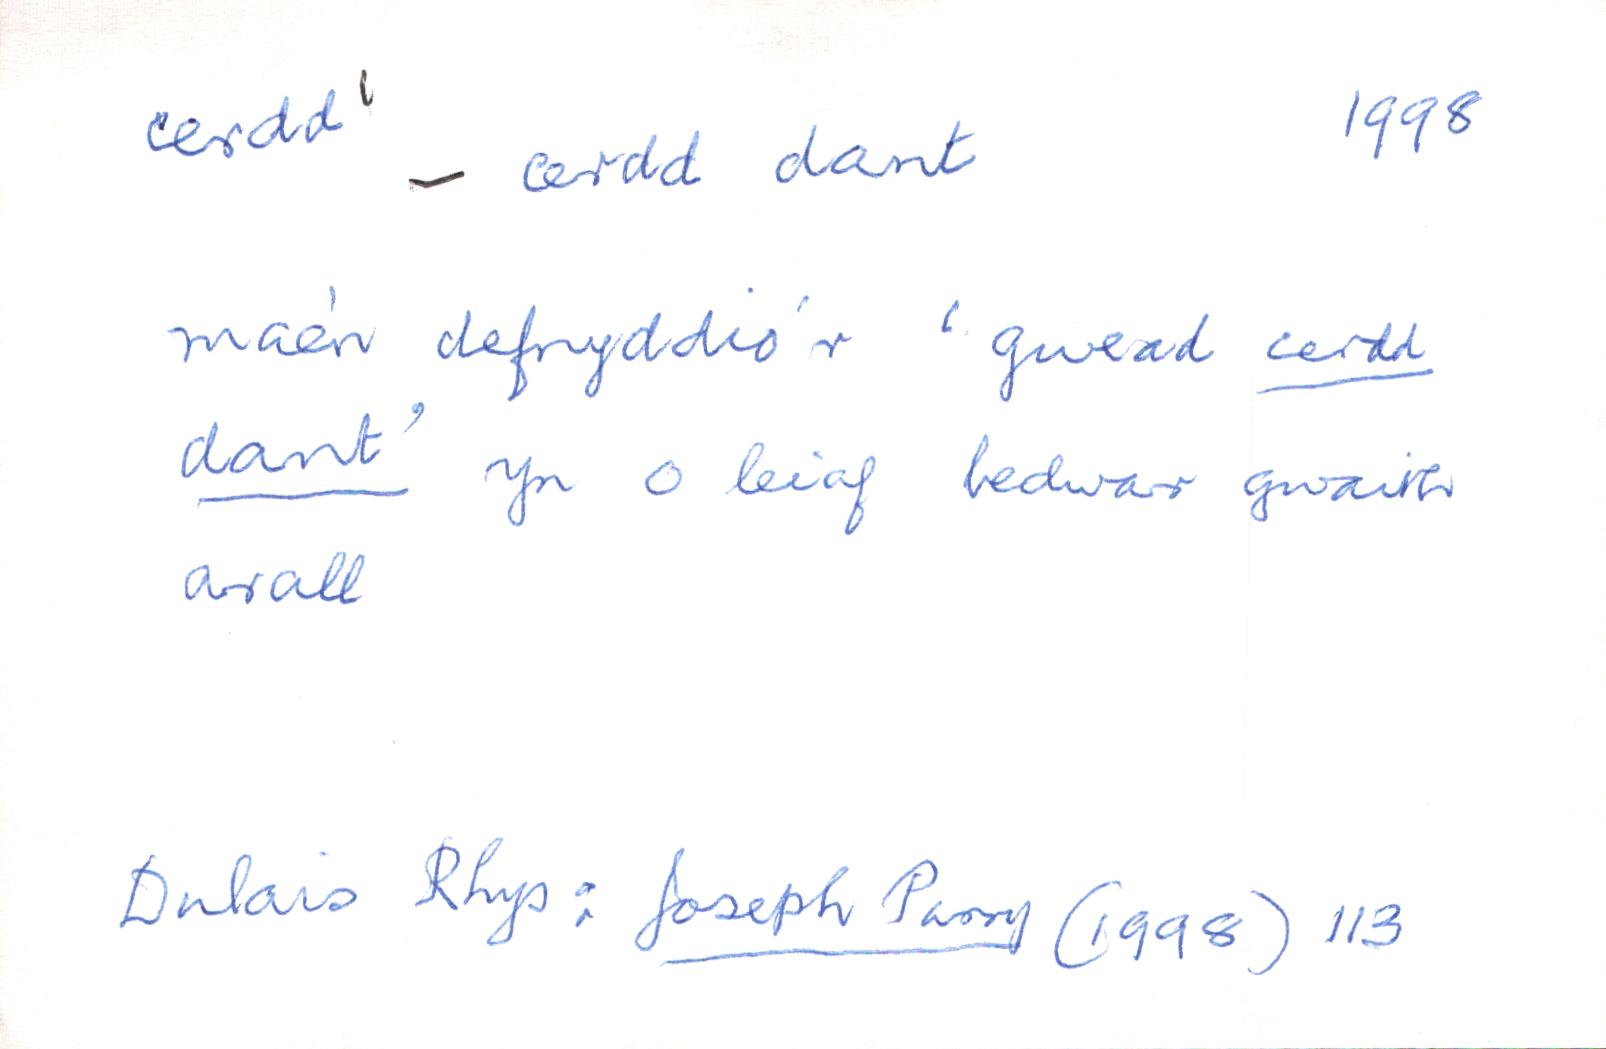 cerdd¹ 1998
– cerdd dant
mae'n defnyddio'r 'gwead cerdd
dant' yn o leiaf bedwar gwaith
arall
Dulais Rhys: Joseph Parry (1998) 113